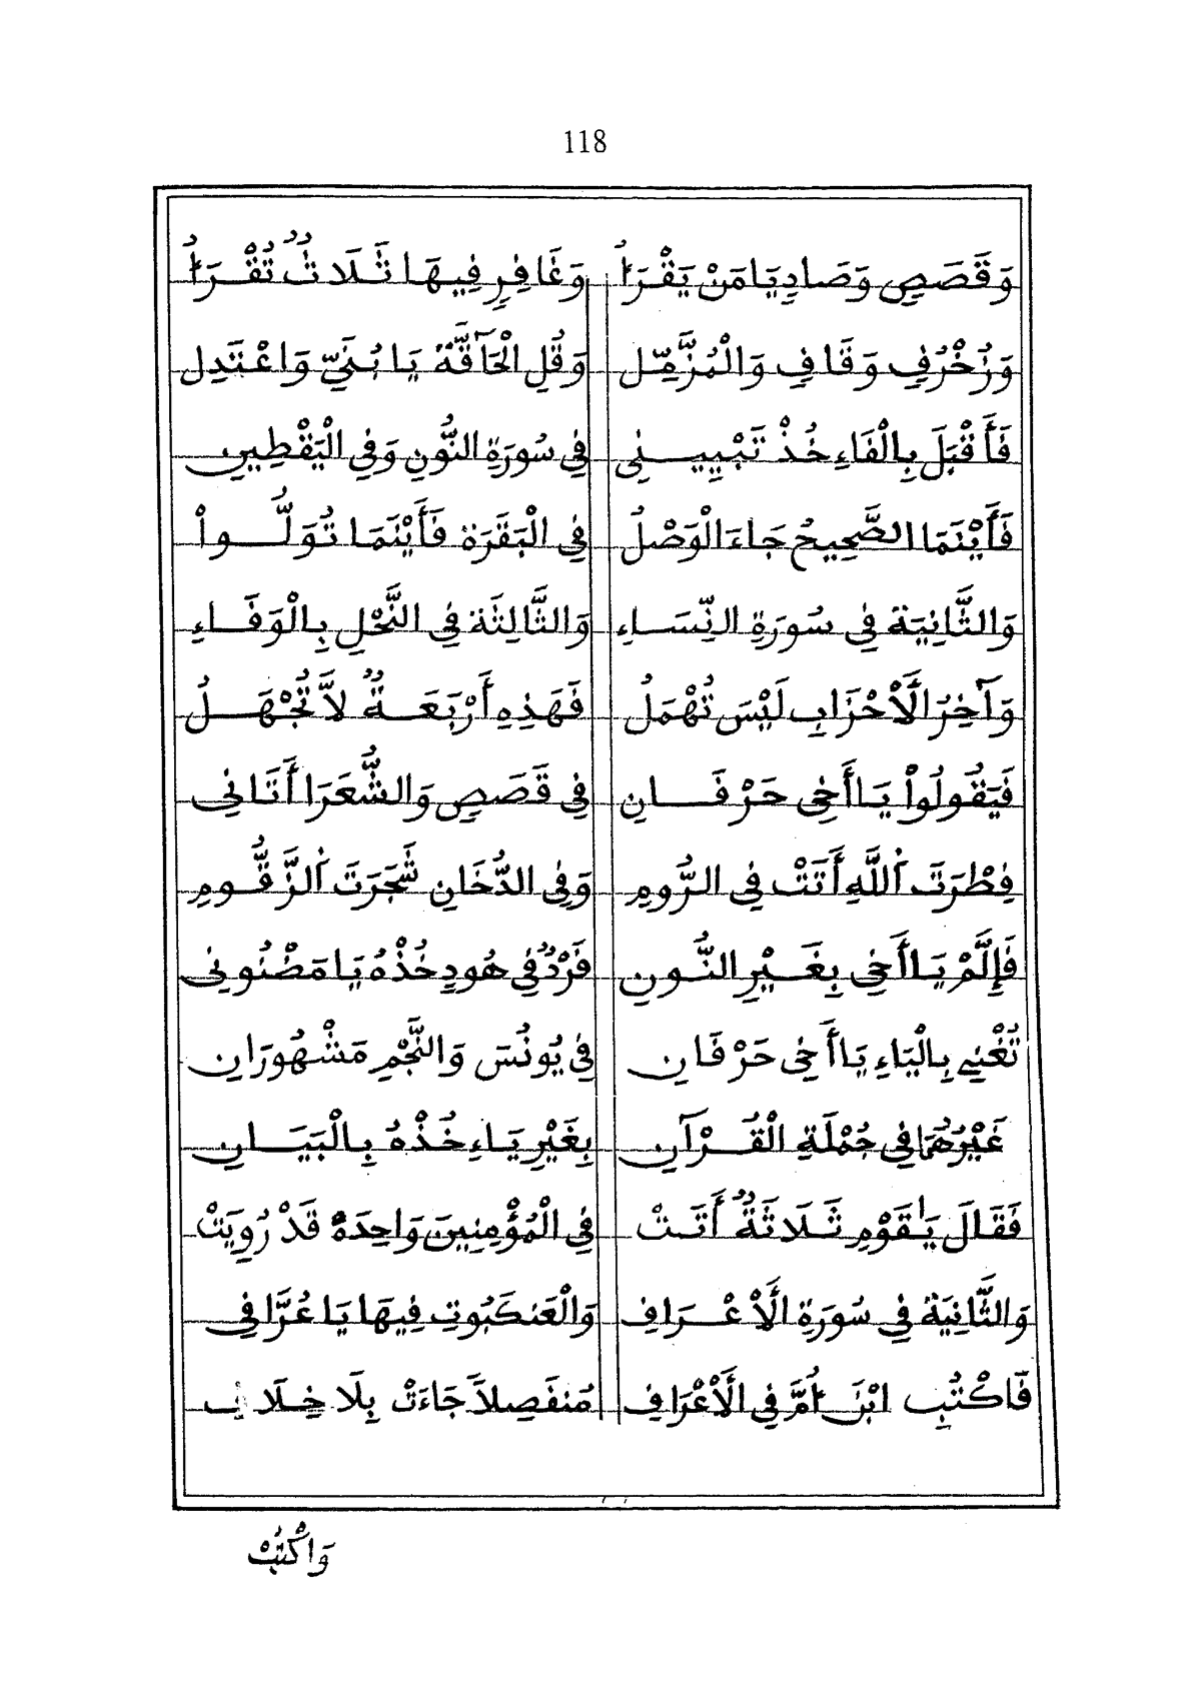 118
وَقَصَصٍ وَصَادِ يَا مَنْ يَقْرَأُ وَغَافِرٍ فِيهَا ثَلَاثٌ تُقْرَأُ
وَزُخْرُفٍ وَقَافِ وَالْمُزَّمِّلِ وَقُلِ الْحَآقَّةُ يَا بُنَيِّ وَاعْتَدِلِ
فَأَقْبَلَ بِالْفَاءِ خُذْ تَبْيِيـنِي فِي سُورَةِ النُّونِ وَفِي الْيَقْطِينِ
فَأَيْنَمَا الصَّحِيحُ جَاءَ الْوَصْلُ فِي الْبَقَرَةِ فَأَيْنَمَا تُوَلُّـواْ
وَالثَّانِيَة فِي سُورَةِ النِّسَـاءِ وَالثَّالِثَة فِي النَّحْلِ بِالْوَفَـاءِ
وَآخِرَ الَأَحْزَابِ لَيْسَ تُهْمَلُ فَهَذِهِ أَرْبَعَـةٌ لاَ تُجْهَـلُ
فَيَقُولُواْ يَا أَخِي حَرْفَـانِ فِي قَصَصٍ وَالشُّعَرَا أَتَانِي
فِطْرَتَ اَللَّهِ أَتَتْ فِي الرُّومِ وَفِي الدُّخَانِ شَجَرَتَ اَلزَّقُّـومِ
فَإِلَّمْ يَا أَخِي بِغَـيْرِ النُّـونِ فَرْدٌ فِي هُودٍ خُذْهُ يَا مَضْنُونِي
تُغْنِي بِالْيَاءِ يَا أَخِي حَرْفَانِ فِي يُونُسَ وَالنَّجْمِ مَشْهُورَانِ
غَيْرُهُمَا فِي جُمْلَةِ الْقُـرْآنِ بِغَيْرِ يَاءِ خُذْهُ بِالْبَيَـانِ
فَقَالَ يَٰقَوْمِ ثَـلَاثَةٌ أَتَـتْ فِي الْمُؤْمِنِينَ وَاحِدَةٌ قَدْ رُوِيَتْ
وَالثَّانِيَةُ فِي سُورَةِ الَأَعْـرَافِ وَالْعَنكَبُوتِ فِيهَا يَا عُرَّافِي
فَاكْتُبِ ابْنَ أُمَّ فِي الَأَعْرَافِ مُنفَصِلاً جَاءَتْ بِلَا خِلَافِ
وَاكْتُبْ